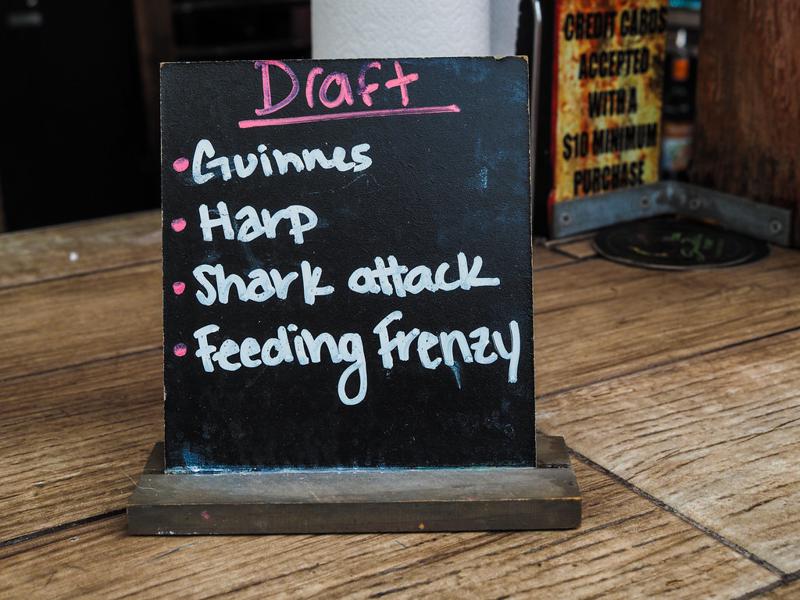 Draft
• Guinnes
• Harp
• Shark attack
• Feeding Frenzy
CREDIT CARDS
ACCEPTED
WITH A
$10 MINIMUM
PURCHASE